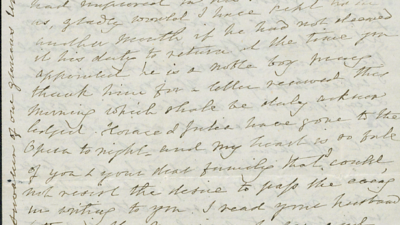 had improved in his
us, gladly would I have kept him
another month if he had not deemed
it his duty to return at the time you
appointed he is a noble boy pray
thank him for a letter received this
morning which shall be duly acknow
ledged. Horace & Julia have gone to the
Opera to night and my heart is so full
of you & your dear family that I could
not resist the desire to pass the evening
in writing to you. I read your husband